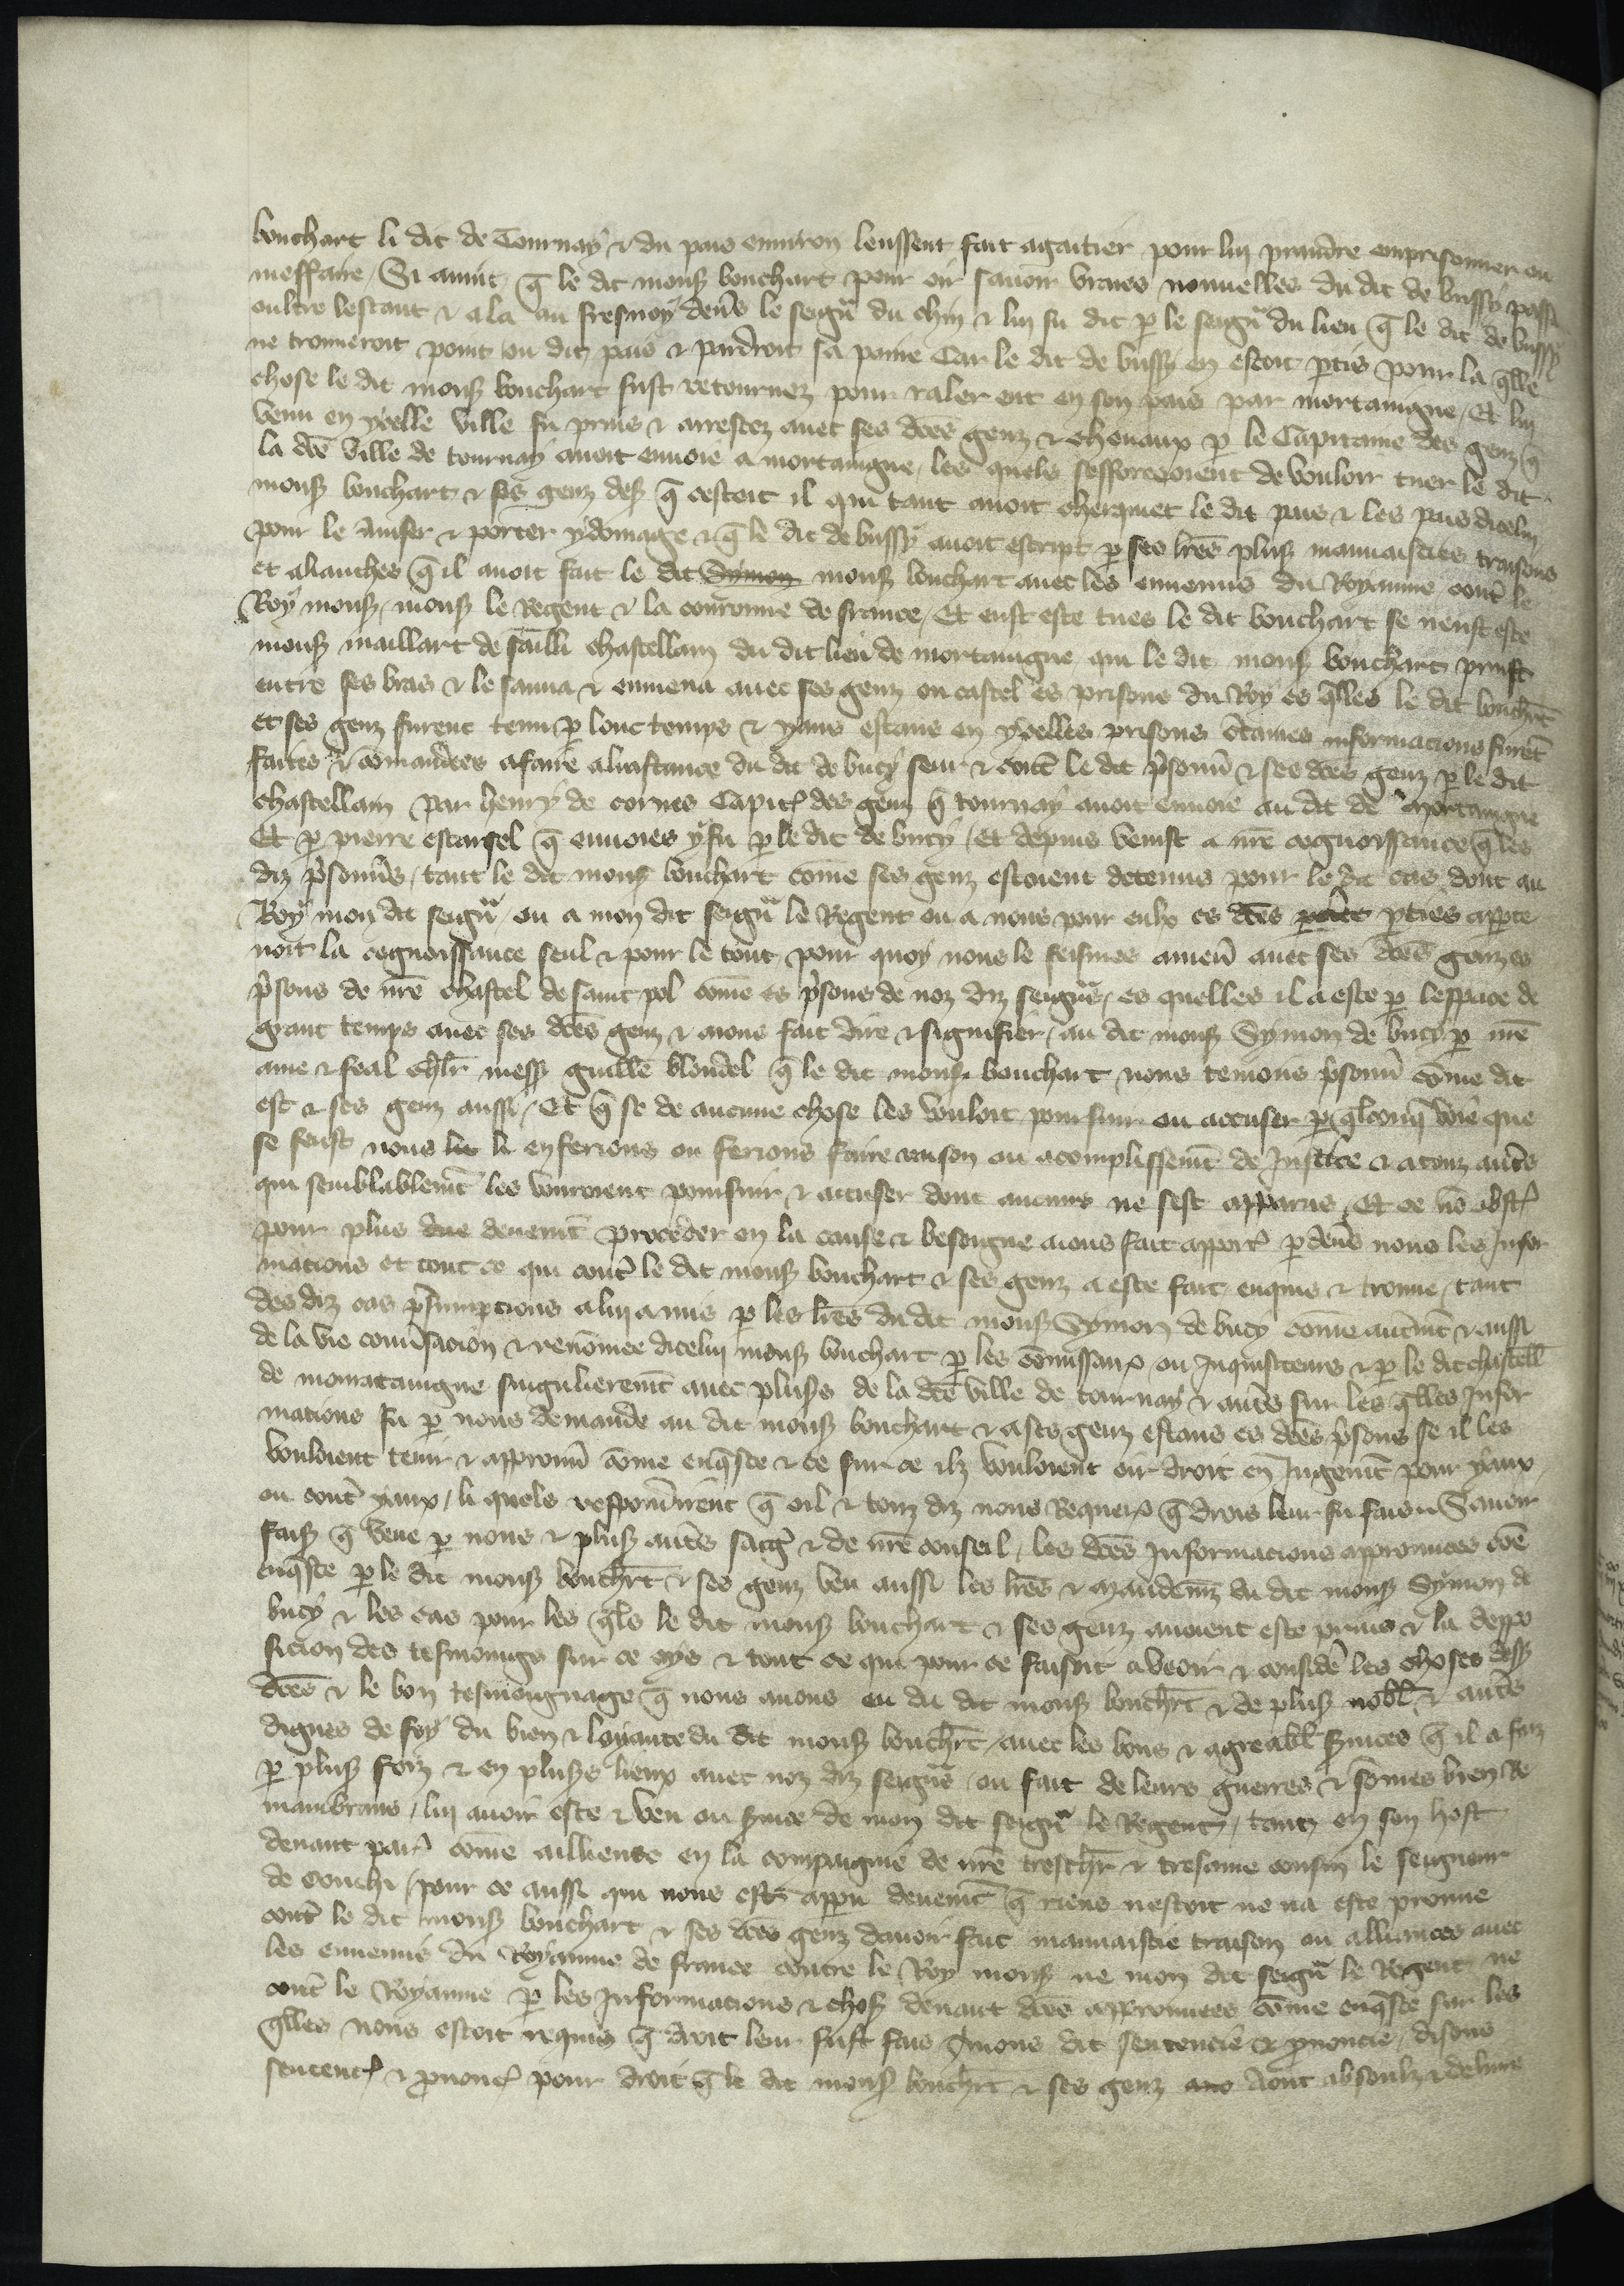 bouchart li dit de Tournay & du pais enuiron leussent fait agaitier pour lui prandre emprisonner ou
meffaire / Si auint / q̄ le dit mons bouchart pour oir sauoir vraies nouuelles du dit de bussy passa
oultre lescaut & ala au fresnoy deu̾s le seigñ du chin & lui fu dit p̱ le seigñ du lieu q̄ le dit de bussy
ne trouueroit point ou dit pais & pardroit sa paine Car le dit de bussy en estoit p̱tis / pour la q̄lle
chose le dit mons bouchart fust retournez pour raler ent en son pais par mortaingne / Et lui
venu en ycelle ville fu prins & arrestez auec ses d̄ces genz & cheuaux p̱ le Capitaine des genz q̄
la d̄ce ville de tournay auoit enuoie a mortaingne / les quels sefforcoient de vouloir tuer le dit
mons bouchart & ses genz dess q̄ cestoit il qui tant auoit cherquiet le dit pais & les pais dicelui
pour le amser & porter y domage & q̄ le dit de bussy auoit escript p̱ ses lr̄es pluss mauuaistiés traisons
et alianches q̄ il auoit fait le dit Symon mons bouchart auec les ennemis du Royaume cont̾ le
Roy mons / mons le Regent & la couronne de france / Et eust este tues le dit bouchart se neust este
mons maillart de sailli chastellain du dit lieu de mortaingne qui le dit mons bouchart prinst
entre ses bras & le sauua & enmena auec ses genz ou castel es prisons du Roy es q̄lles le dit bouch̄rt
et ses genz furent tenu p̱ lonc temps & yaus estans en ycelles prisons c̾taines informacions furēt
faites & cōmandees a faire a linstance du dit de bucy seur & cont̾ le dit p̾sonn̾ & ses d̄ces genz p̱ le dit
chastellain par henry de cornes Capit̾ des genz q̄ tournay auoit enuoie au dit de mortaingne
Et p̱ pierre estaisel q̄ enuoies y fu p̱ le dit de bucy / Et depuis venist a nr̄e cognoissance q̄ les
diz p̾sonn̾s / tant le dit mons bouchart cōme ses genz estoient detenus pour le dit cas dont au
Roy mon dit seigñ / ou a mon dit seigñ le Regent ou a nous pour eulx es d̄ces p̱ties app̱te
noit la cognoissance seul & pour le tout / pour quoy nous le feismes amen̾ auec ses d̄ces genz es
p̾sons de nr̄e chastel de saint pol cōme es p̾sons de noz diz seigñs / es quelles il a este p̱ lespace de
grant temps auec ses d̄ces genz & auons fait dire & signifier / au dit mons Symon de bucy p̱ nr̄e
ame & feal ch̄lr mess guillē blondel q̄ le dit mons bouchart nous teniens p̾sonn̾ cōme dit
est & ses genz aussi / Et q̄ se de aucune chose les vouloit poursuir ou accuser p̱ q̄lconq̄ voie que
se feust nous lit li en feriens ou feriens faire raison ou acomplissemēt de Justice & a touz autr̄es
qui semblablemēt les vouroient poursuir & accuser dont aucuns ne sest apparus / Et ce nō obst̾
pour plus due deuemēt proceder en la cause & besongne aions fait apport̾ p̱ deu̾s nous les Infor
mations et tout ce qui cont̾ le dit mons bouchart & ses genz a este fait enquis & trouue / tant
des diz cas p̾sumptions a lui a mis p̱ les lr̄es du dit mons Symon de bucy cōme autremēt & aussi
de la vie conu̾sacion & renōmee dicelui mons bouchart p̱ les cōmissairs ou Inquisiteurs & p̱ le dit chastell̄
de morrataingne singulieremēt auec pluss de la d̄ce ville de tournay & autr̄es sur les q̄lles Infor
mations fu p̱ nous demande au dit mons bouchart & a ses genz estans es d̄ces p̾sons se il les
vouloient tenir & approuu̾ cōme enq̄ste & ce sur ce ilz vouloient oir droit en Jugemēt pour yaux
ou cont̾ yaux / li quels respondirent q̄ oil & touz diz nous Requer̾ q̄ drois leur fu faiz / Sauoir
faiss q̄ veue p̱ nous & pluss autr̄es saig̾ & de nr̄e conseil / les d̄ces Informacions approuuees cōe
enq̄ste p̱ le dit mons bouch̄rt & ses genz veu aussi les lr̄es & mandemz du dit mons Symon de
bucy & les cas pour les q̄ls le dit mons bouchart & ses genz auoient este prins & la deppo
sicion des tesmoings sur ce oys & tout ce qui pour ce faisoit a veoir & consid̾ les choses dess
d̄ces & le bon tesmongnage q̄ nous auons eu du dit mons bouch̄rt & de pluss nobl̄ & autr̄es
dignes de foy du bien & loyaute du dit mons bouch̄rt / auec les bons & agreabl̄ seruices q̄ il a faiz
p̱ pluss foiz & en pluss lieux auec noz diz seigñs / ou fait de leurs guerres & sōmes bien Re
manbrans / lui auoir este & veu ou seruice de mon dit seigñ le Regent / tant en son host
deuant par̾ cōme ailliens en la compaignie de nr̄e tresch̄r & tresame cousin le seigneur
de couchi / pour ce aussi qui nous est apparu deuemēt q̄ riens nestoit ne na este prouue
cont̾ le dit mons bouchart & ses d̄ces genz dauoir fait mauuaistie traison ou alliances auec
les ennemis du Royaume de france contre le Roy mons ne mon dit seigñ le Regent ne
cont̾ le Royaume p̱ les Informacions & chos̾ deuant d̄ces approuuees cōme enq̄ste sur les
q̄lles nous estoit requis q̄ droit leur fust fais Auons dit sentencie & pnoncie / disons
sentenc̾ & pnonc̾ pour droit q̄ le dit mons bouch̄rt & ses genz sont absoulz & deliure